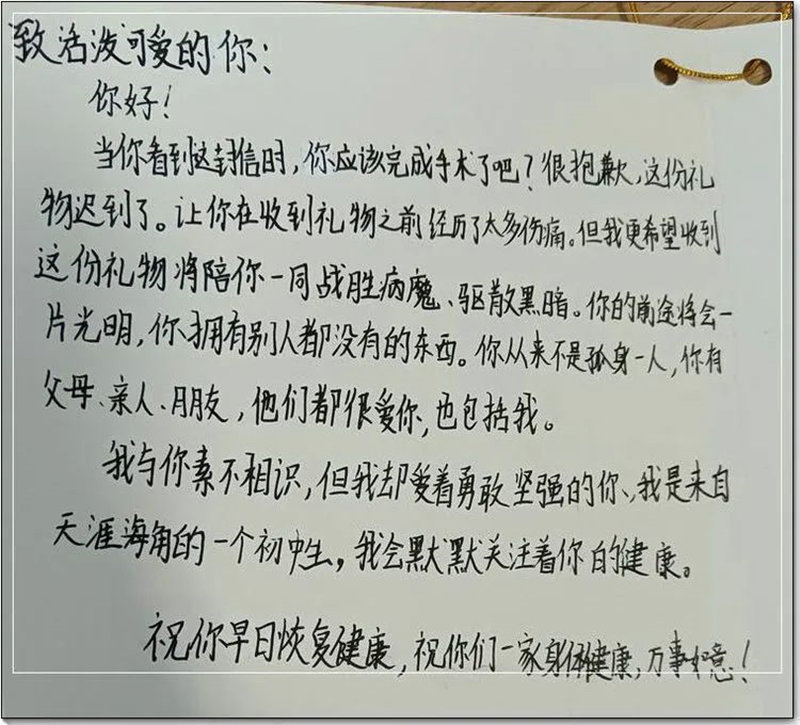 致活泼可爱的你：
你好！
当你看到这封信时，你应该完成手术了吧？很抱歉，这份礼
物迟到了。让你在收到礼物之前经历了太多伤痛。但我更希望收到
这份礼物将陪你一同战胜病魔、驱散黑暗。你的前途将会一
片光明，你拥有别人都没有的东西。你从来不是孤身一人，你有
父母、亲人、朋友，他们都很爱你，也包括我。
我与你素不相识，但我却爱着勇敢坚强的你、我是来自
天涯海角的一个初中生，我会默默关注着你的健康。
祝你早日恢复健康，祝你们一家身体健康、万事如意！